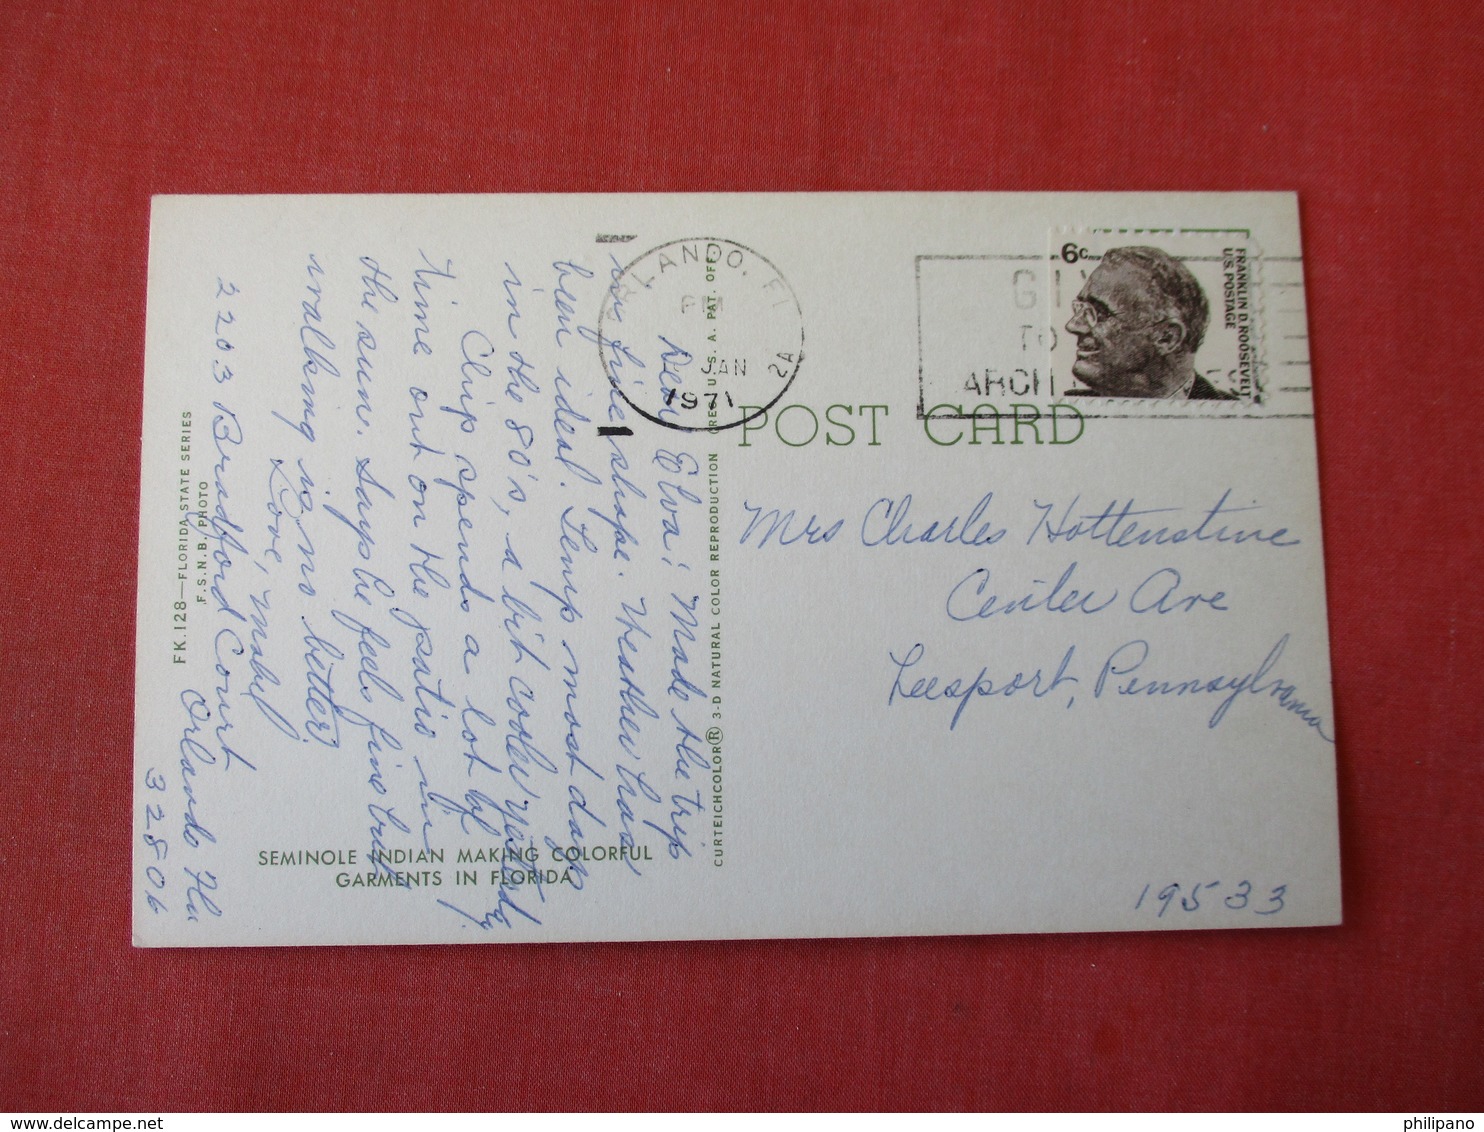 Dear Elva: Made the trip
in fine shape. Weather has
been ideal. Temp most days
in the 80's, a bit cooler yesterday.
Clip spends a lot of
time out on the patio in
the sun. Says he feels fine but
walking is no better.
Love, Mabel
2203 Bradford Court
Orlando Fla
32806
FK.128—FLORIDA STATE SERIES
F.S.N.B. PHOTO
SEMINOLE INDIAN MAKING COLORFUL
GARMENTS IN FLORIDA
CURTEICHCOLOR® 3-D NATURAL COLOR REPRODUCTION U.S.A. PAT. OFF.
ORLANDO, FL
PM
JAN
1971
2A
GIV
TO
ARCH
6c
FRANKLIN D. ROOSEVELT
U.S. POSTAGE
POST CARD
Mrs Charles Hottenstine
Center Ave
Leesport, Pennsylvania
19533
philipano